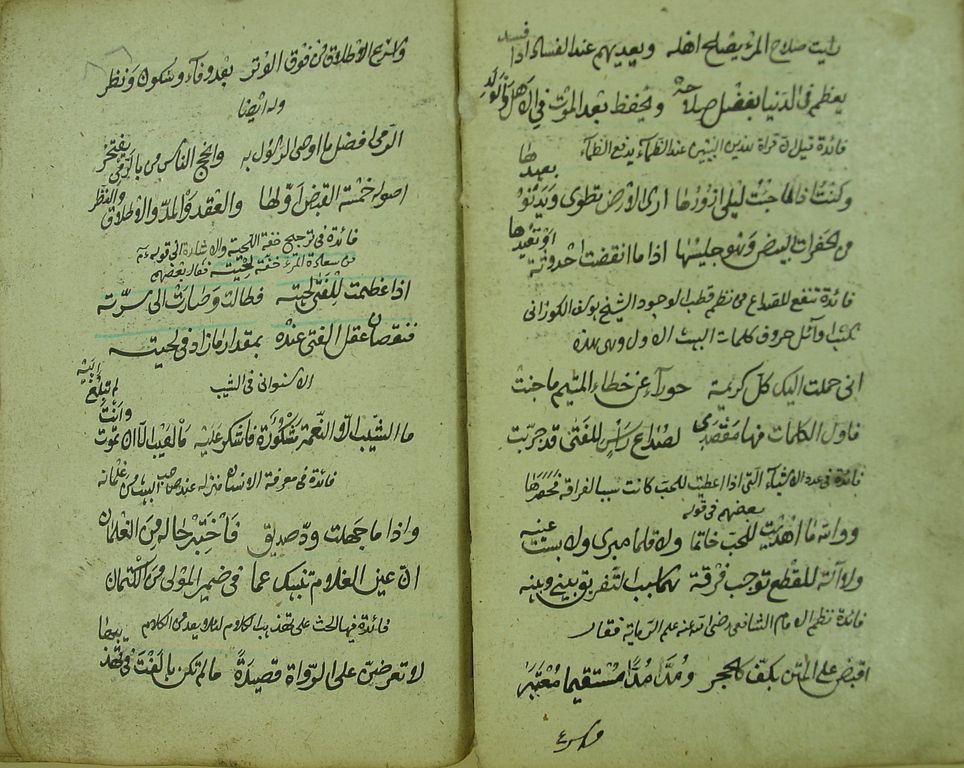 رايت صلاح المرء يصلح اهله ويعديهم عند الفساد اذا فسد
يعظم في الدنيا بفضل صلاحه ويحفظ بعد الموت في الاهل والولد
فائدة قيل ان قراة هذين البيتين عند الظماء يدفع الظماء
وكنت اذا ما جئت ليلى ازورها ارى الارض تطوى لي ويدنو بعيدها
من الخفرات البيض ود جليسها اذا ما انقضت احدوثة او تعيدها
فائدة تنفع للصداع من نظم قطب الوجود الشيخ يوسف الكوراني
تكتب اوائل حروف كلمات البيت الاول وهي هذه
اني حملت اليك كل كريمة حوراء عن خطاء المتيم ما جنت
فاول الكلمات فيها مقصدي لصداع راس للفتى قد جربت
فائدة في عدد الاشياء التي اذا اعطيت للمحب كانت سببا لفراقه فحصرها
بعضهم في قوله
ووالله ما اهديت للحب خاتما ولا قلما مبرى ولا بست عينيه
ولا آلة للقطع توجب فرقة تفريق بيني وبينه
فائدة نظم الامام الشافعي رضي الله عنه علم الرماية فقال
اقبض على المتن بكف كالحجر ومد مدا مستقيما معتبر
واسرع الاطلاق من فوق الوتر بعد وفاء وسكون ونظر
وله ايضا
الرمي افضل ما اوصى الرسول به وانجح الناس من بالرمي يفتخر
اصوله خمسة القبض اولها والعقد والمد والاطلاق والنظر
فائدة في ترجيح خفة اللحية والاشارة الى قوله
من سعادة المرء خفة لحيته فقال بعضهم
اذا عظمت للفتى لحية فطالت وصارت الى سرته
فنقصان عقل الفتى عنده بمقدار ما زاد في لحيته
الاسواني في الشيب
ما الشيب الا نعمة مشكورة فاشكر عليه ما لغيب الا ان تموت وانت لم تبلغ
فائدة في معرفة الانسان منزله عند صاحب البيت من غلمانه
واذا ما جهلت ود صديق فاختبر حاله من الغلمان
ان عين الغلام تنبيك عما في ضمير المولى من الكتمان
فائدة فيها الحث على تهذيب الكلام لئلا يعد من الكلام
لا تعرضن على الرواة قصيدة ما لم تكن بالغت في تهذيبها